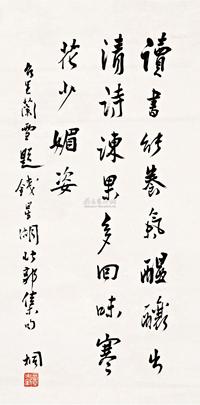 讀書能養氣醞釀出
清詩諫果多回味寒
花少媚姿
吳蘭雪題錢星湖北郭集句